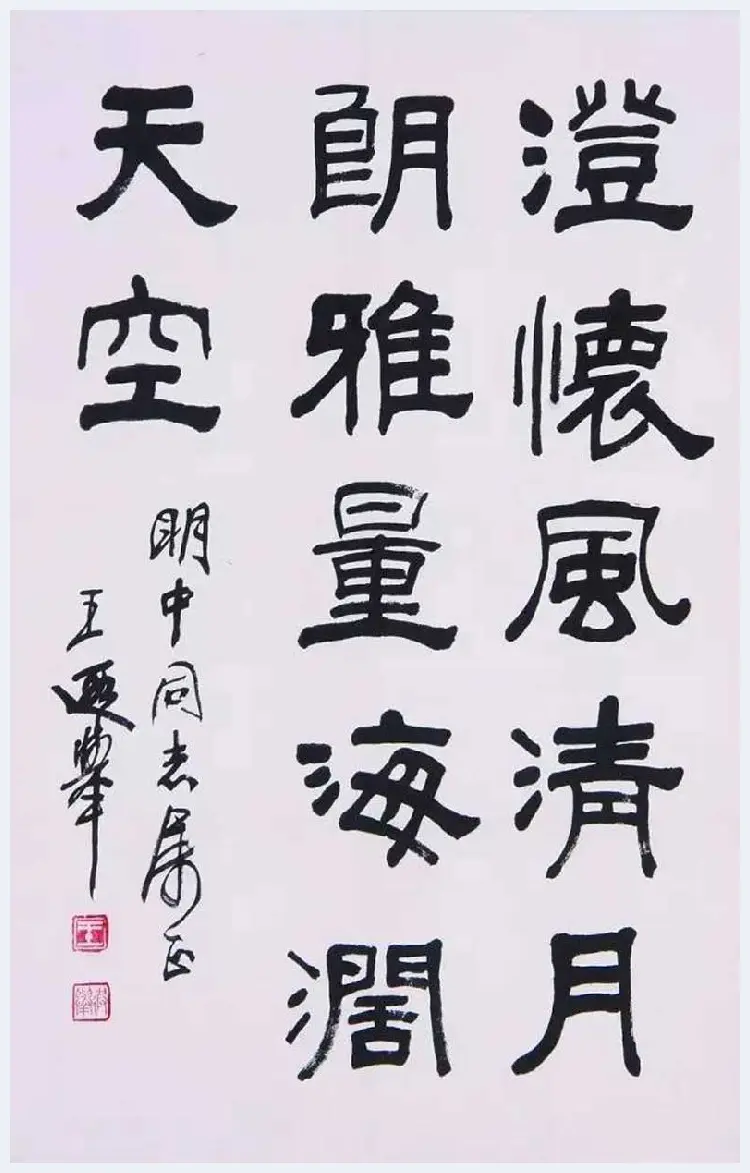 澄懷風清月
朗雅量海濶
天空
明中同志属正
王遐舉
王